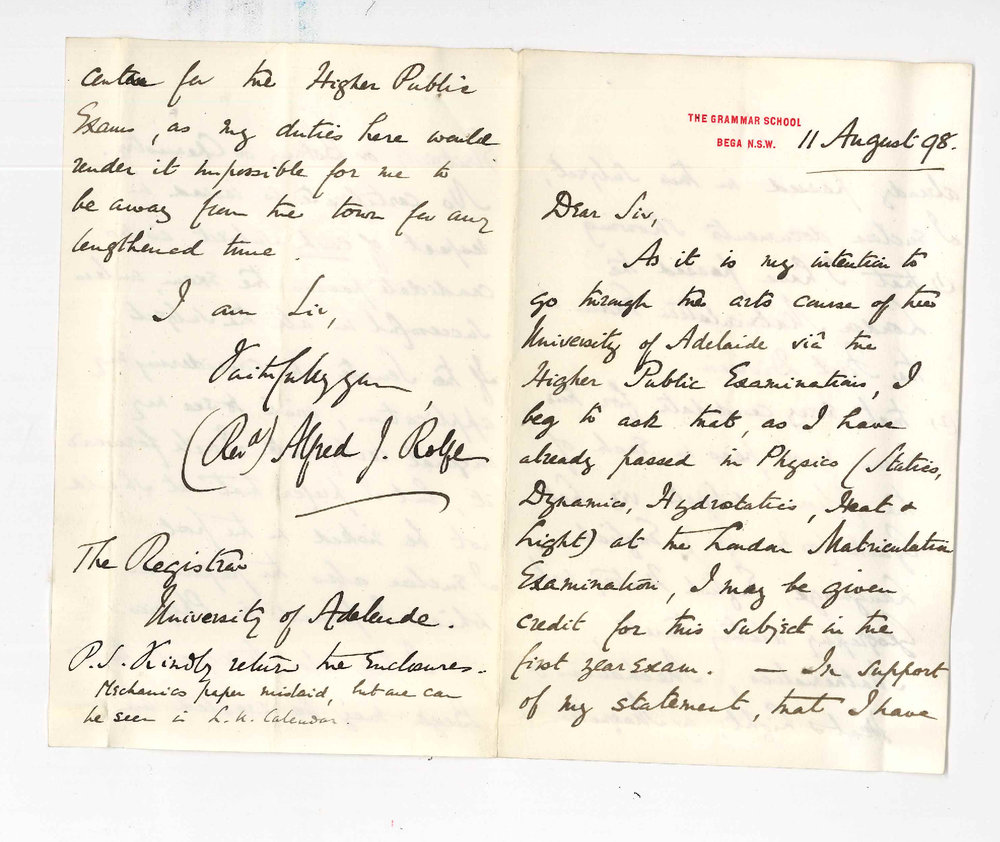 THE GRAMMAR SCHOOL
BEGA N.S.W.
11 August 98.
Dear Sir,
As it is my intention to
go through the arts course of the
University of Adelaide viâ the
Higher Public Examinations, I
beg to ask that, as I have
already passed in Physics (Statics,
Dynamics, Hydrostatics, Heat &
Light) at the London Matriculation
Examination, I may be given
credit for this subject in the
first year exam. — In support
of my statement, that I have
centre for the Higher Public
Exams, as my duties here would
render it impossible for me to
be away from the town for any
lengthened time.
I am Sir,
Faithfully yours,
(Revd) Alfred J. Rolfe
The Registrar
University of Adelaide.
P.S. Kindly return the Enclosures.
Mechanics paper mislaid, but one can
be seen in L. U. Calendar.